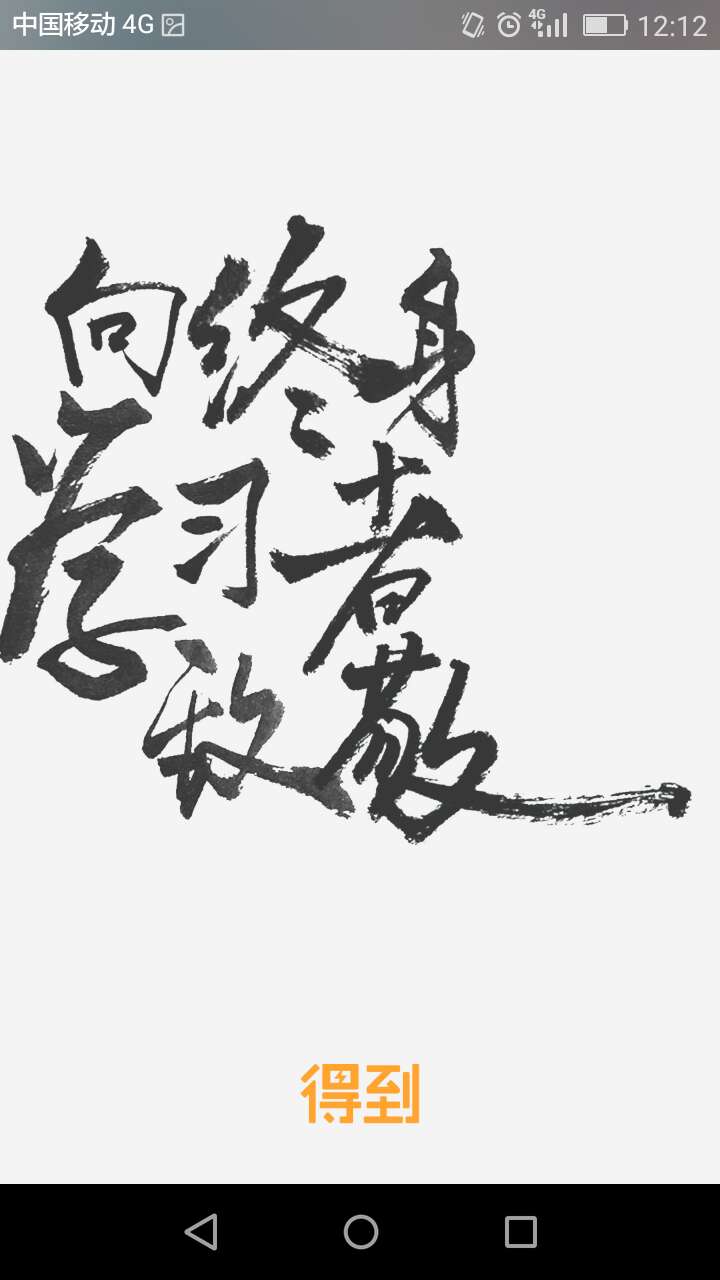 中国移动 4G 4G 12:12
向终身
学习者
致敬
得到